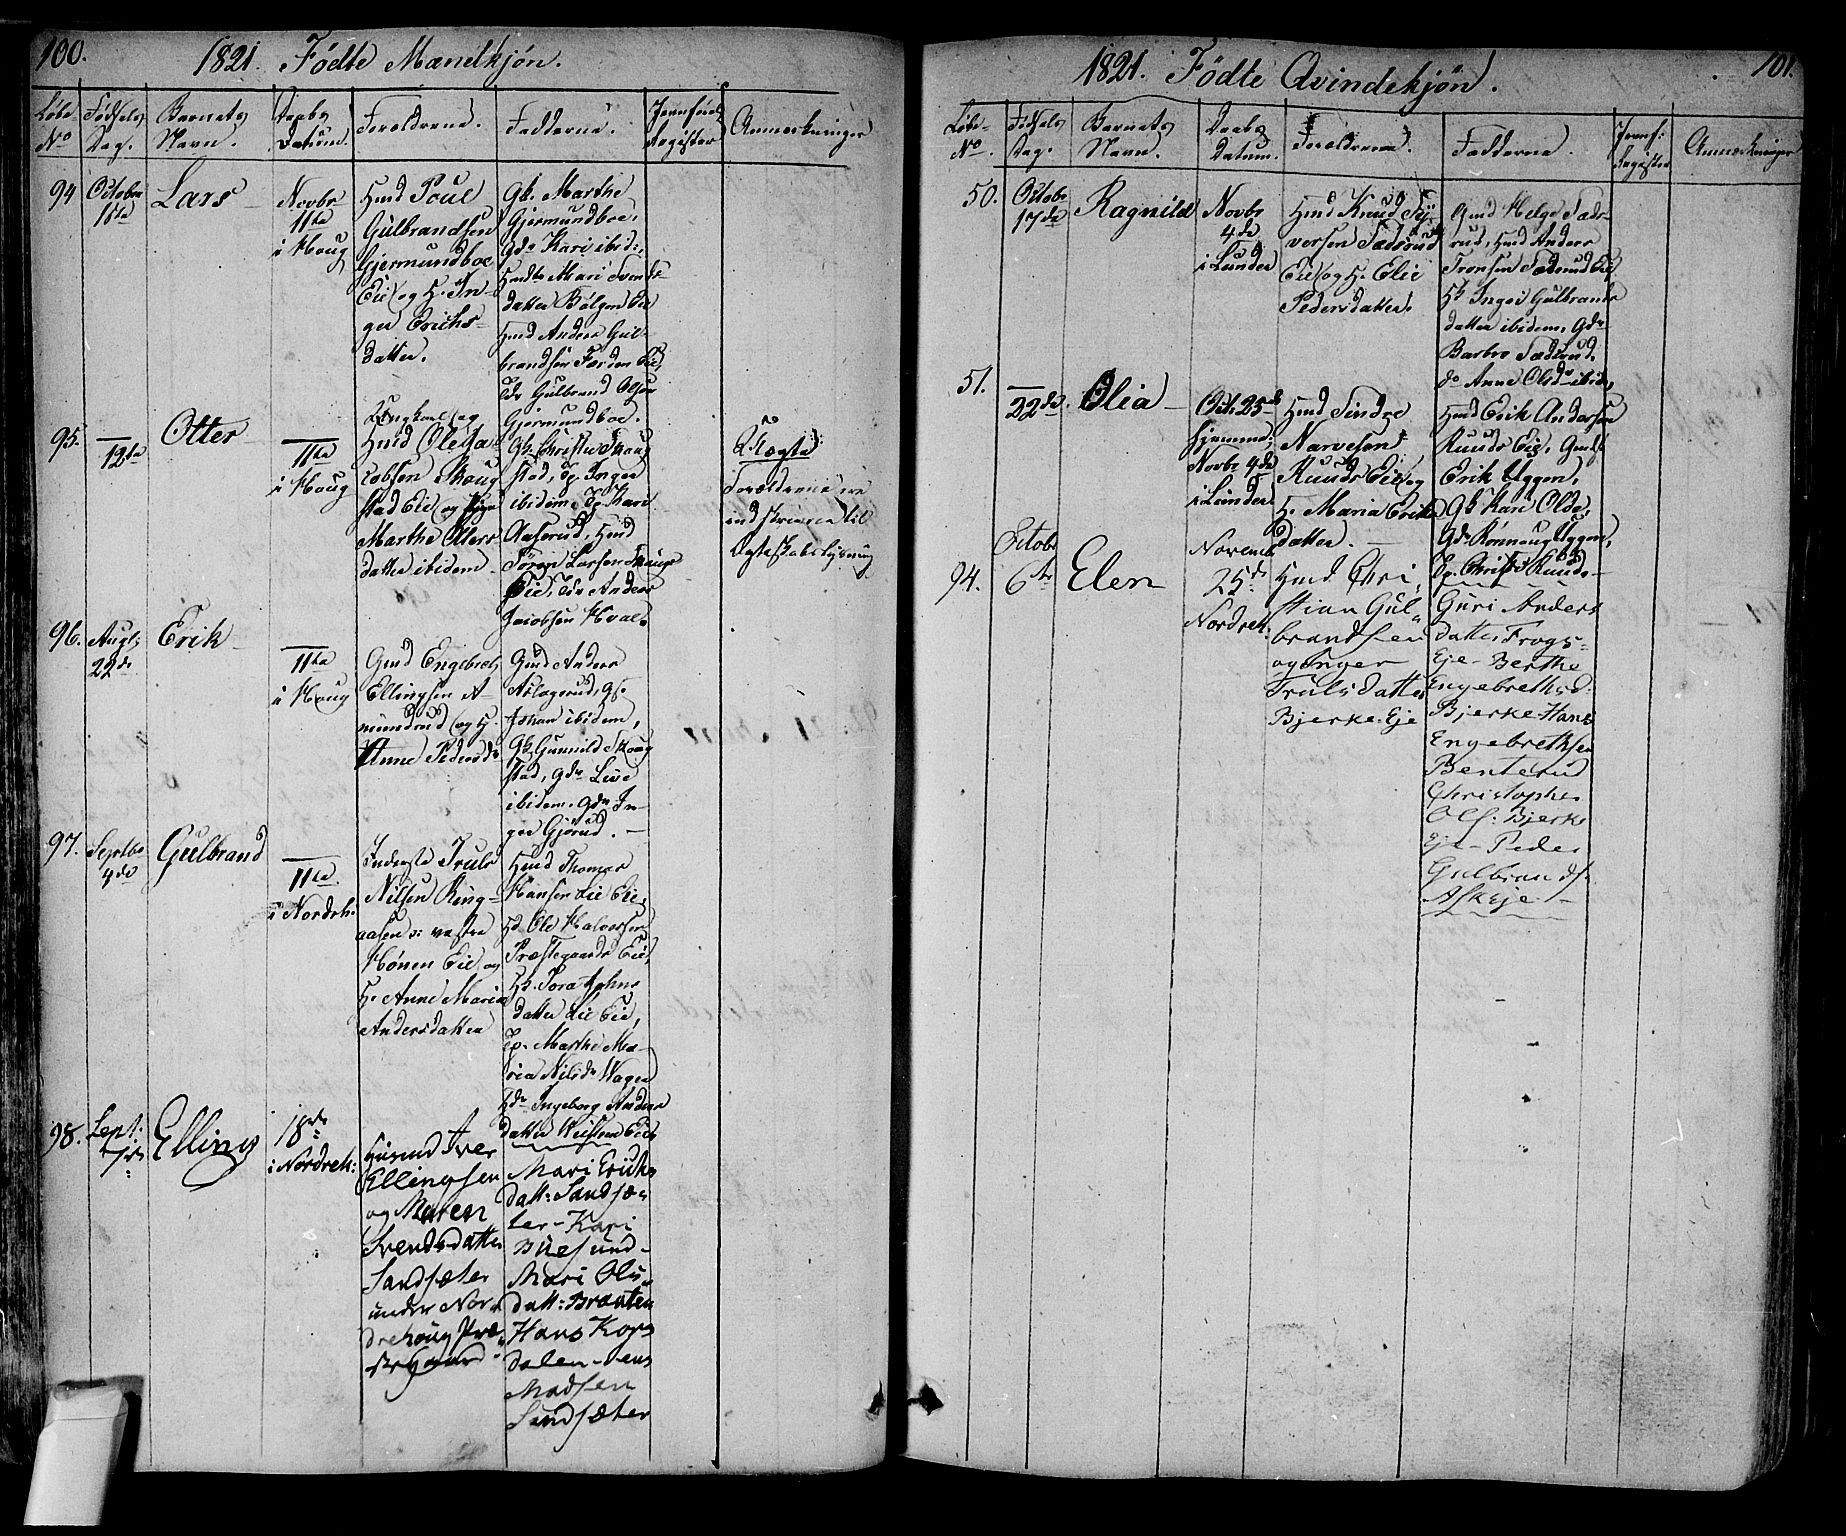 100.
1821. Fødte Mandkjøn.
Løbe No
Fødsels Dag.
Barnets Navn.
Daabs Datum.
Foreldrene.
Fadderne.
Jevnførels Register
Anmerkninger
94
October
1ste
Lars
Novbr
11te
i Houg
Hmd Poul
Gulbrandsen
Gjermundboe
Eie og H. In-
ger Erichs-
datter.
Gk. Marthe
Gjermundboe,
Gdr Kari ibid:,
Mari Svends-
datter Bølgen Eie
Hmd Anders Gul-
brandsen Færden Eie,
Gulbrand Olsen
Gjermundboe.
95.
12te
Otter
11te
i Houg
Ungkarl og
Hmd Ole Ja-
cobsen Skoug-
stad Eie og Pige
Marthe Oters-
datter ibidem.
Gk. Christie Skoug-
stad, Ep. Inger
ibidem, Ep. Kari
Aaserud, Hmd
Søren Larsen Skougs-
Eie, Anders
Jacobsen Hval.
Uægte:
Foreldrene ere
indskrevne til
Egteskabslysning
96.
Augt:
22de
Erik
11te
i Houg
Gmd Engebret
Ellingsen A-
mundrud og H.
Anne Pedersdr
Gmd Anders
Aslagerud, Gs.
Johan ibidem,
Gk. Gunnild Skoug-
stad, Gdr Live
ibidem, Gdr In-
ger Gjørud.
97.
Septbr
4de
Gulbrand
11te
i Nordreh.
Inderste Truls
Nilsen Ring-
aasen vestre
Hønen Eie og
H. Anne Maria
Andersdatter
Hmd Thomas
Hansen Lie Eie,
Ole Halvorsen
Præstegaards Eie,
Hk. Tora Johns-
datter Lie Eie,
Ep. Marthe Ma-
ria Nilsdr Wagen
Ingeborg Anders-
datter Weisten Eie
98.
Sept:
7de
Elling
18de
i Nordreh:
Husmd Iver
Ellingsen
og Maren
Svendsdatter
Sandsæter
under Nor-
drehoug Præ-
stegaard
Mari Erichs
datt: Sandsæ-
ter - Kari
Buesund -
Mari Ols
datt: Braaten
Hans Kors
dalen - Jens
Madsen
Sandsæter
101.
1821. Fødte Qvindekjøn.
Løbe- No.
Fødsels Dag.
Barnets Navn.
Daabs Datum.
Forældrene.
Fadderne.
Jevnf: Register
Anmærkninger
50.
Octobr
17de
Ragnild
Novbr
4de
i Lunder
Hmd Knud Sy-
versen Sædsrud
Eie og H. Elie
Pedersdatter.
Gmd Helge Sæds-
rud, Hmd Anders
Tronsen Sædsrud Eie,
Hk Ingri Gulbrands-
datter ibidem, Gdr
Barbro Sædsrud
do Anne Olsdr ibid.
51.
22de.
Olia
Oct. 25de
hjemme:
Novbr 4de
i Lunder
Hmd Sindre
Narvesen
Ruuds Eie og
H. Maria Eriks-
datter.
Hmd Erik Andersen
Ruuds Eie, Gmd
Erik Uggen,
Gk Kari Olde,
Gdr Rønnaug Uggen,
Ep. Christi Ruud.
94.
Octobr
6te
Elen
Novemb
25de
Nordreh:
Hmd Chri
stian Gul
brandsen
og Inger
Trulsdatter
Bjerke-Eje
Guri Anders
datter Frogs-
Eje - Berthe
Engebrethsd:
Bjerke - Hans
Engebrethsen
Benterud
Christopher
Ols: Bjerke
Eje - Peder
Gulbrands.
Ask Eje -